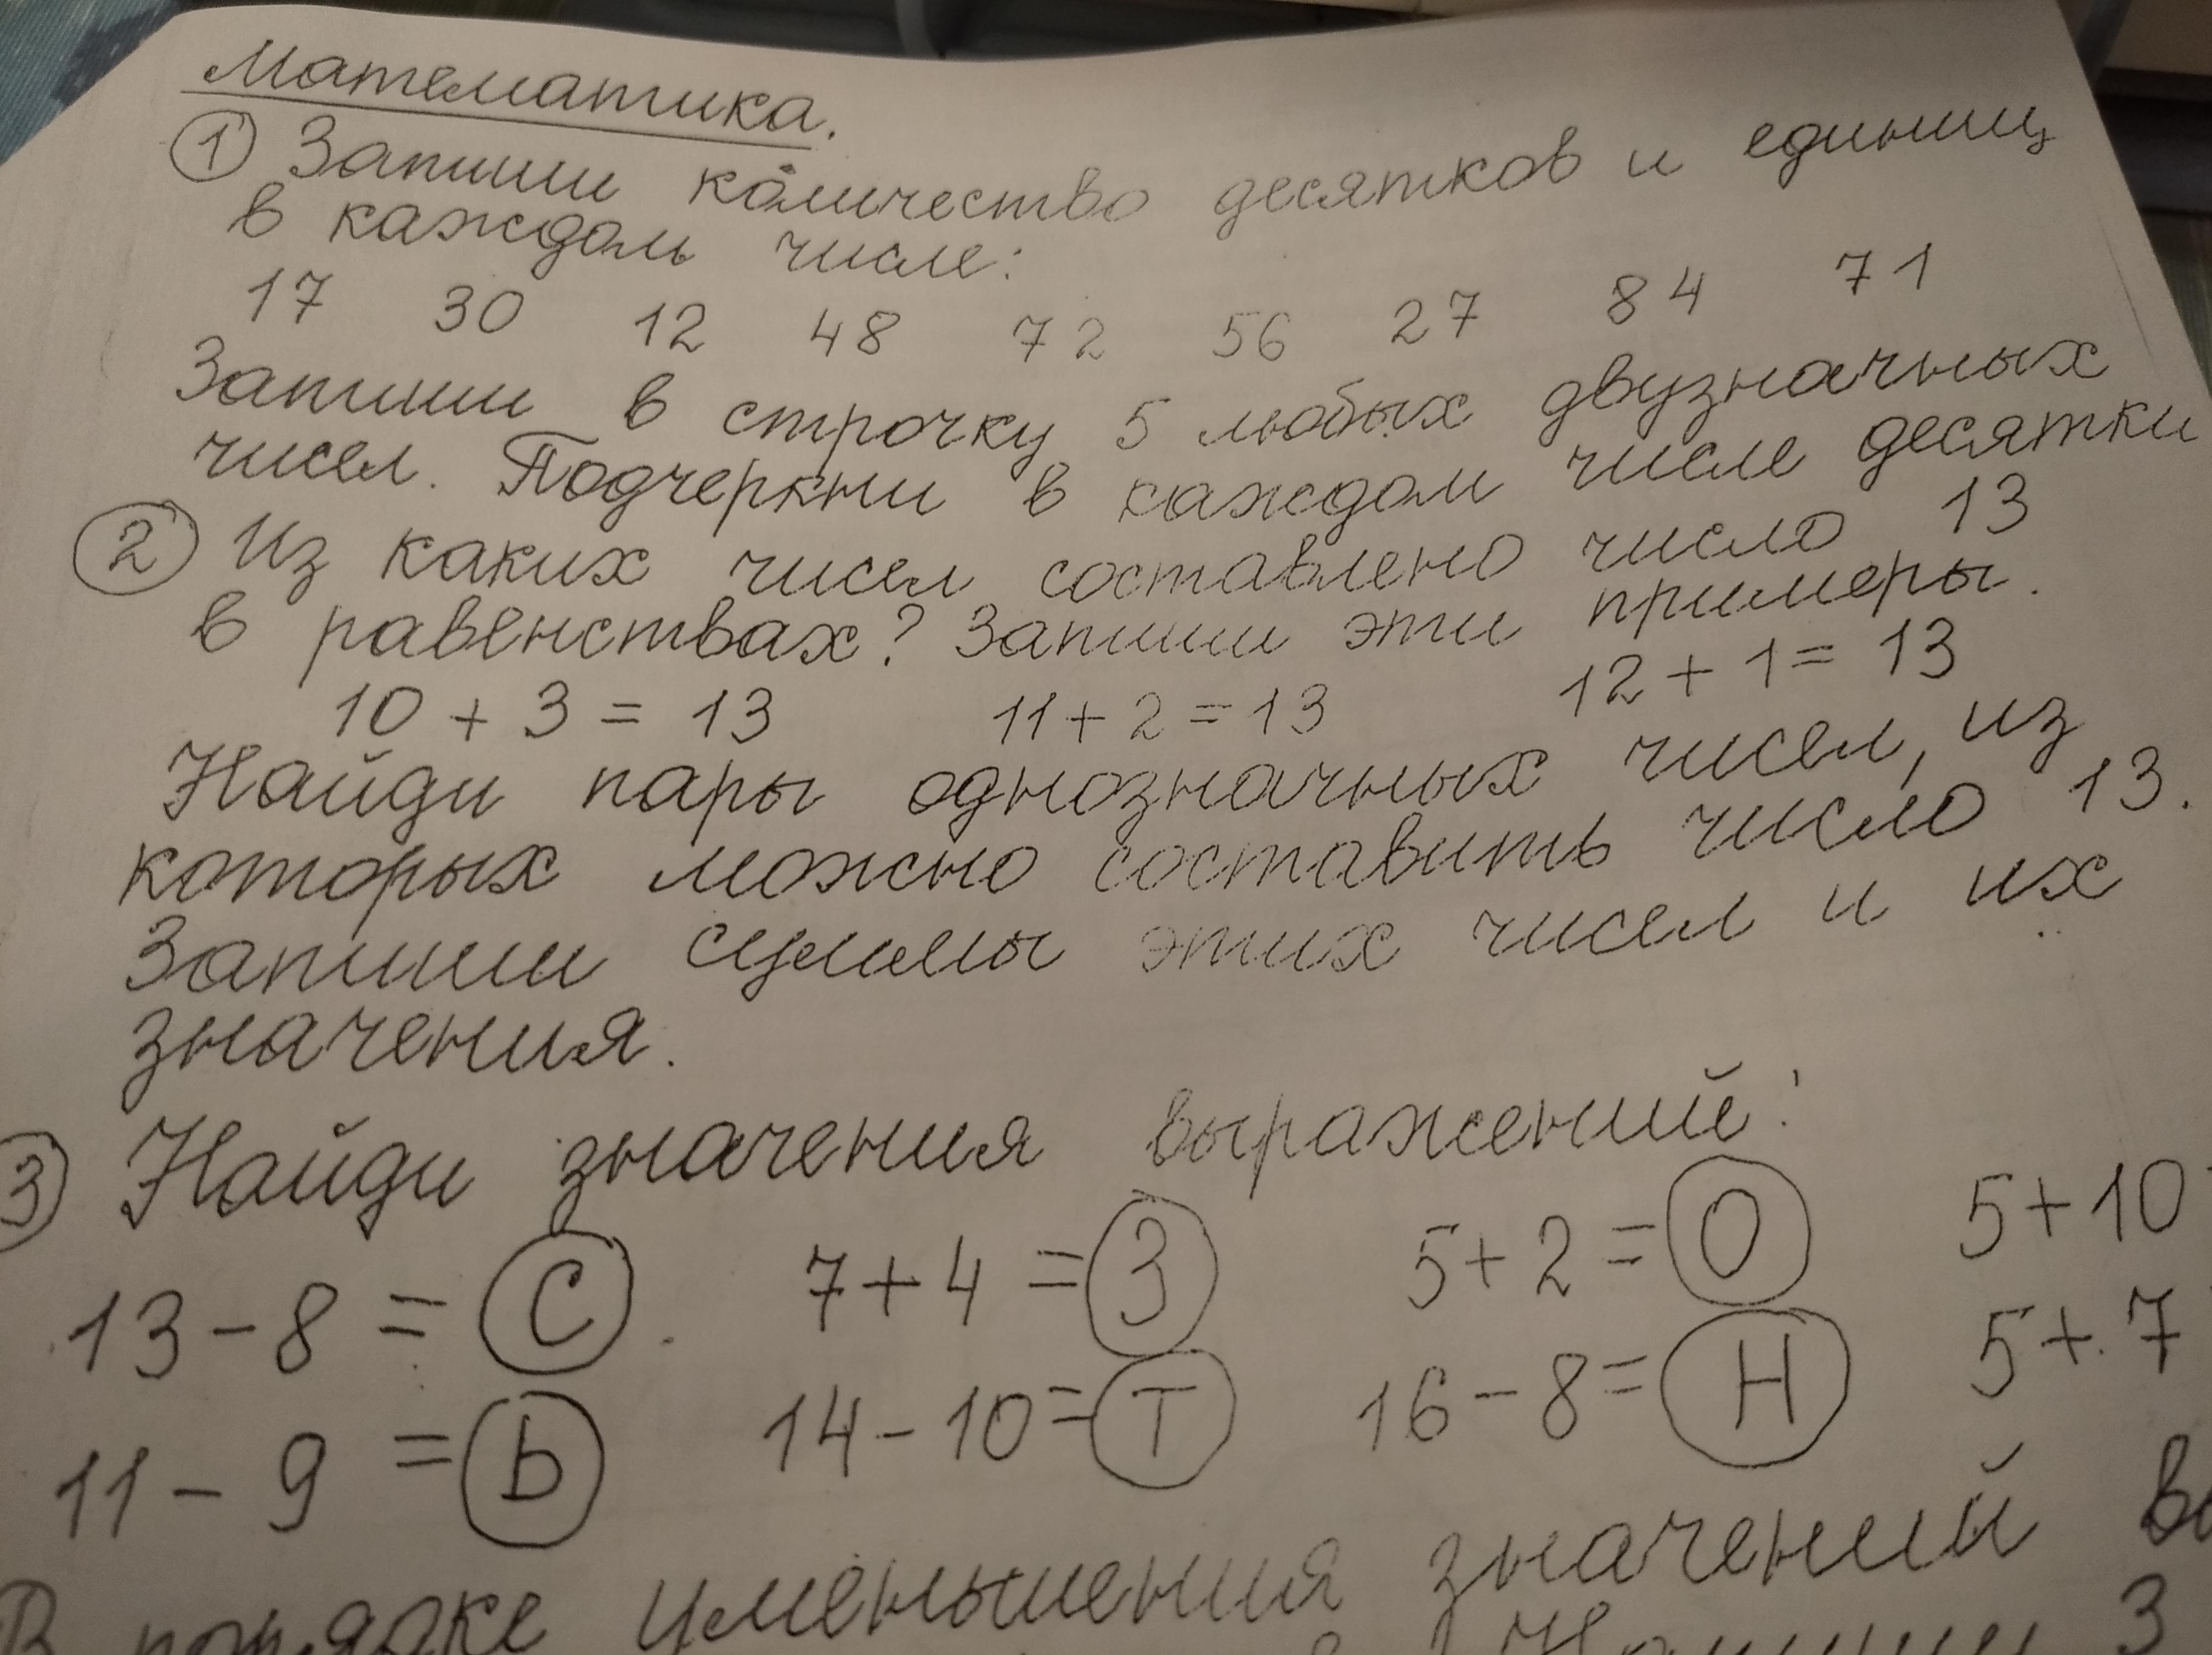 Математика.
① Запиши количество десятков и единиц
в каждом числе:
17 30 12 48 72 56 27 84 71
Запиши в строчку 5 любых двузначных
чисел. Подчеркни в каждом числе десятки
② Из каких чисел составлено число 13
в равенствах? Запиши эти примеры.
10 + 3 = 13 11 + 2 = 13 12 + 1 = 13
Найди пары однозначных чисел, из
которых можно составить число 13.
Запиши суммы этих чисел и их
значения.
③ Найди значения выражений:
13 - 8 = С 7 + 4 = З 5 + 2 = О 5 + 10
11 - 9 = Ь 14 - 10 = Т 16 - 8 = Н 5 + 7
В порядке уменьшения значений